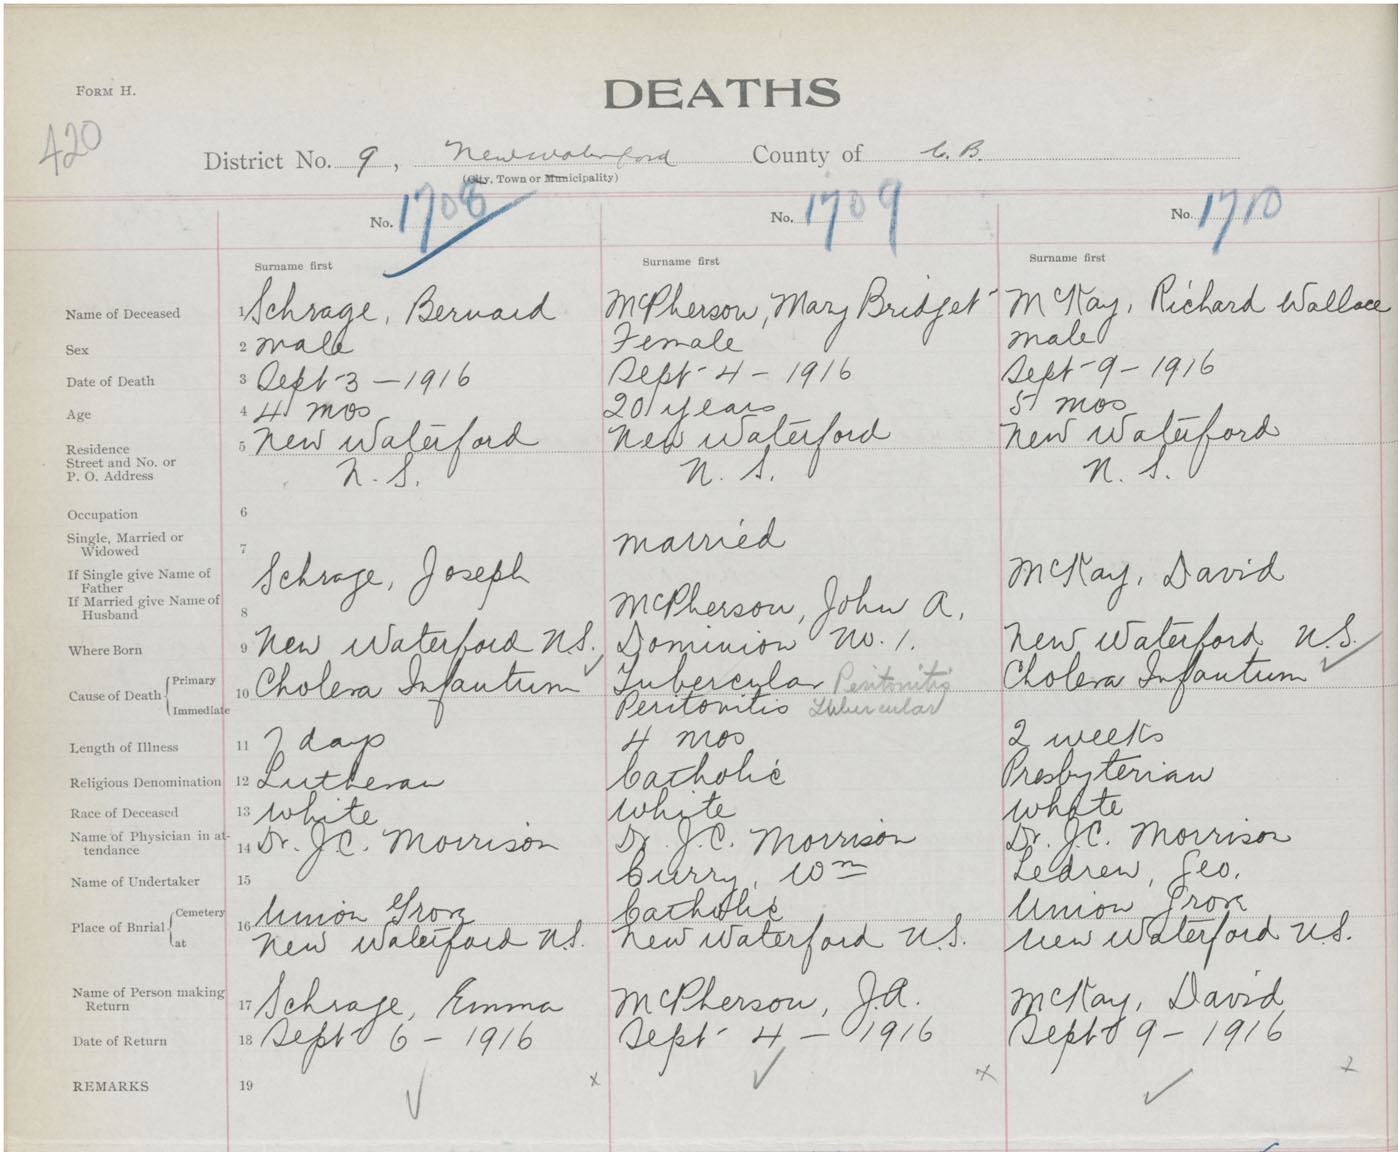 FORM H.
DEATHS
420
District No. 9, New Waterford County of C. B.
(City, Town or Municipality)
No. 1708 No. 1709 No. 1710
Surname first Surname first Surname first
Name of Deceased 1 Schrage, Bernard McPherson, Mary Bridget McKay, Richard Wallace
Sex 2 male Female male
Date of Death 3 Sept-3-1916 Sept-4-1916 Sept-9-1916
Age 4 4 mos 20 years 5 mos
Residence 5 New Waterford New Waterford New Waterford
Street and No. or
P. O. Address N. S. N. S. N. S.
Occupation 6
Single, Married or
Widowed 7 married
If Single give Name of
Father Schrage, Joseph McKay, David
If Married give Name of
Husband 8 McPherson, John A.
Where Born 9 New Waterford N.S. Dominion No. 1. New Waterford N.S.
Cause of Death Primary 10 Cholera Infantum Tubercular Peritonitis Cholera Infantum
Immediate Peritonitis Tubercular
Length of Illness 11 7 days 4 mos 2 weeks
Religious Denomination 12 Lutheran Catholic Presbyterian
Race of Deceased 13 white white white
Name of Physician in at-
tendance 14 Dr. J.C. Morrison Dr. J.C. Morrison Dr. J.C. Morrison
Name of Undertaker 15 Curry, Wm Ledrew, Geo.
Place of Burial Cemetery 16 Union Grove Catholic Union Grove
at New Waterford N.S. New Waterford N.S. New Waterford N.S.
Name of Person making
Return 17 Schrage, Emma McPherson, J.A. McKay, David
Date of Return 18 Sept 6-1916 Sept-4-1916 Sept 9-1916
REMARKS 19 x x x